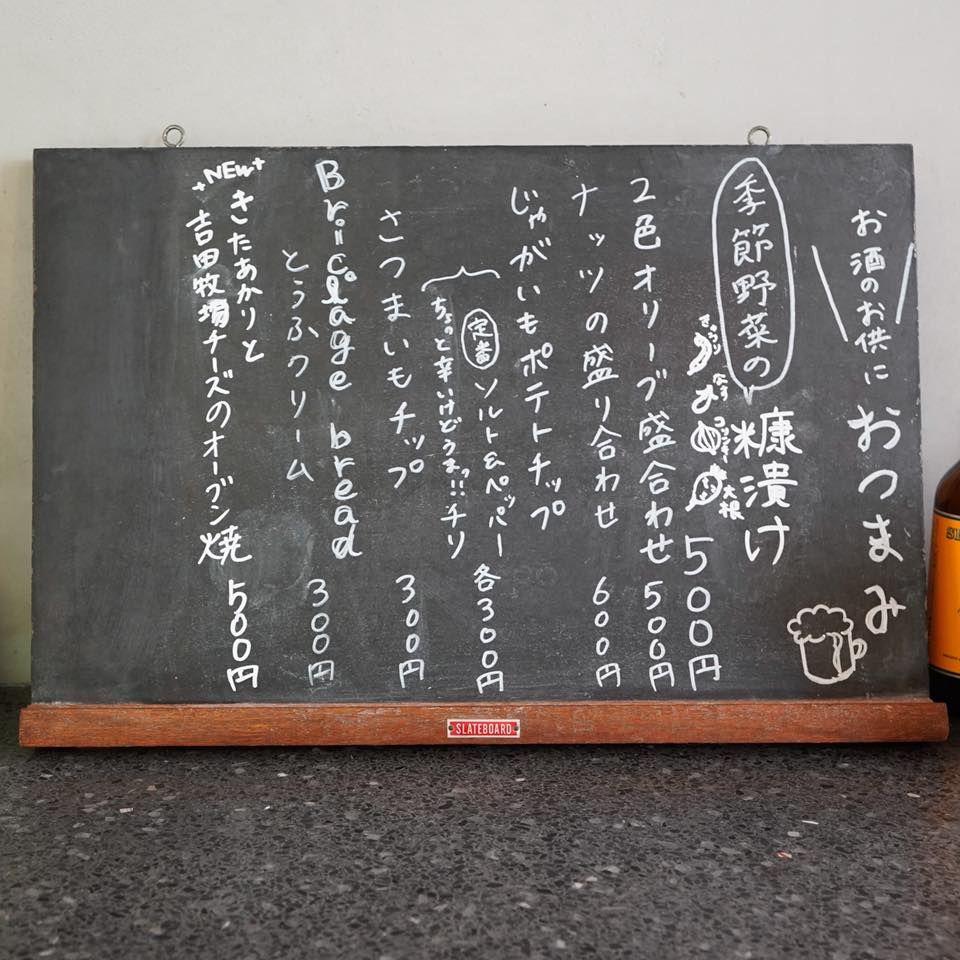 お酒のお供に
おつまみ
季節野菜の
糠漬け
きゅうり
なす
大根
500円
2色オリーブ盛合わせ 500円
ナッツの盛り合わせ 600円
じゃがいもポテトチップ
定番 ソルト&ペッパー
ちょっと辛いけどうまっ!!チリ
各300円
さつまいもチップ 300円
Bricolage bread
とうふクリーム 300円
NEW
きたあかりと
吉田牧場チーズのオーブン焼 500円
SLATEBOARD